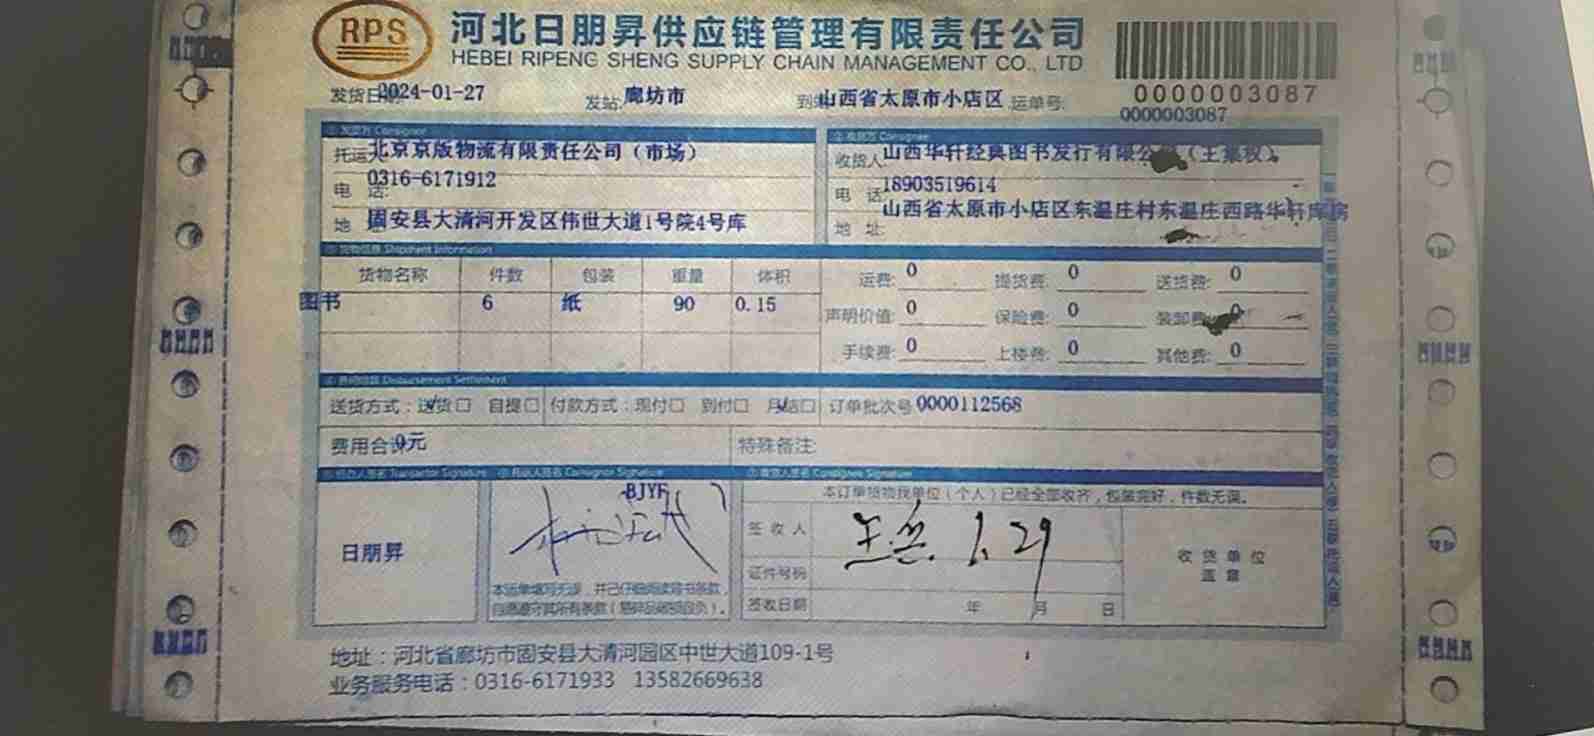 RPS 河北日朋昇供应链管理有限责任公司
HEBEI RIPENG SHENG SUPPLY CHAIN MANAGEMENT CO., LTD
发货日期 2024-01-27 发站: 廊坊市 到站 山西省太原市小店区 运单号: 0000003087
0000003087
① 发货方 Consignor ② 收货方 Consignee
托运人 北京京版物流有限责任公司（市场） 收货人 山西华轩经典图书发行有限公
电 话: 0316-6171912 电 话 18903519614
地 固安县大清河开发区伟世大道1号院4号库 地 址: 山西省太原市小店区东温庄村东温庄西路华轩库房
③ 货物信息 Shipment Information
货物名称 件数 包装 重量 体积 运费: 0 提货费: 0 送货费: 0
图书 6 纸 90 0.15 声明价值: 0 保险费: 0 装卸费: 0
手续费: 0 上楼费: 0 其他费: 0
④ 费用结算 Disbursement Settlement
送货方式：送货□ 自提□ 付款方式：现付□ 到付□ 月结□ 订单批次号 0000112568
费用合计 0元 特殊备注:
经办人签名 Transactor Signature 托运人签名 Consignor Signature 收货人签名 Consignee Signature
BJYF 本订单货物我单位（个人）已经全部收齐，包装完好，件数无误。
日朋昇 签收人 1.29 收货单位
证件号码 盖章
本运单填写无误，并已仔细阅读背书条款，
自愿遵守其所有条款（易碎品破损自负）。 签收日期 年 月 日
地址：河北省廊坊市固安县大清河园区中世大道109-1号
业务服务电话：0316-6171933 13582669638